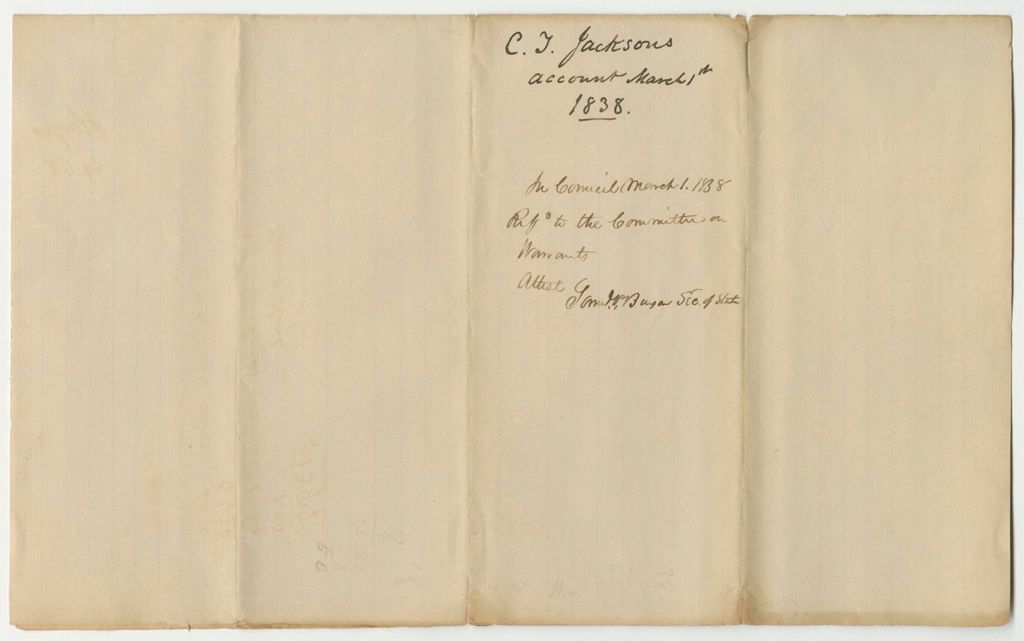 C. T. Jacksons
account March 1st
1838.
In Council March 1. 1838
Reffd to the Committee on
Warrants
Attest
Saml. P. Benson Sec. of State